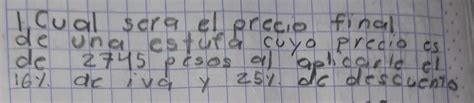 1. Cual sera el precio final
de una estufa cuyo precio es
de 2745 pesos al aplicarle el
16%. de iva y 25%. de descuento